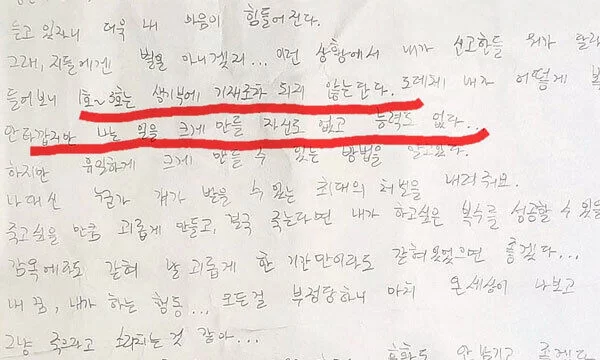 듣고 있자니 더욱 내 마음이 힘들어진다.
그래, 지들에겐 별일 아니겠지... 이런 상황에서 내가 신고한들 뭐가 달라
들어보니 1호~3호는 생기부에 기재조차 되지 않는단다. 도데체 내가 어떻게 복
안타깝지만 나는 일을 크게 만들 자신도 없고 능력도 없다...
하지만 유일하게 크게 만들 수 있는 방법을 알고있다.
나 대신 누군가 걔가 받을 수 있는 최대의 처벌을 내려줘요.
죽고싶을 만큼 괴롭게 만들고, 결국 죽는다면 내가 하고싶은 복수를 성공할 수 있을
감옥에라도 갇혀 날 괴롭게 한 기간만이라도 갇혀있었으면 좋겠다...
내 꿈, 내가 하는 행동... 모든걸 부정당하니 마치 온세상이 나보고
그냥 죽으라고 소리치는 것 같아...
안 남기고 죽게 다